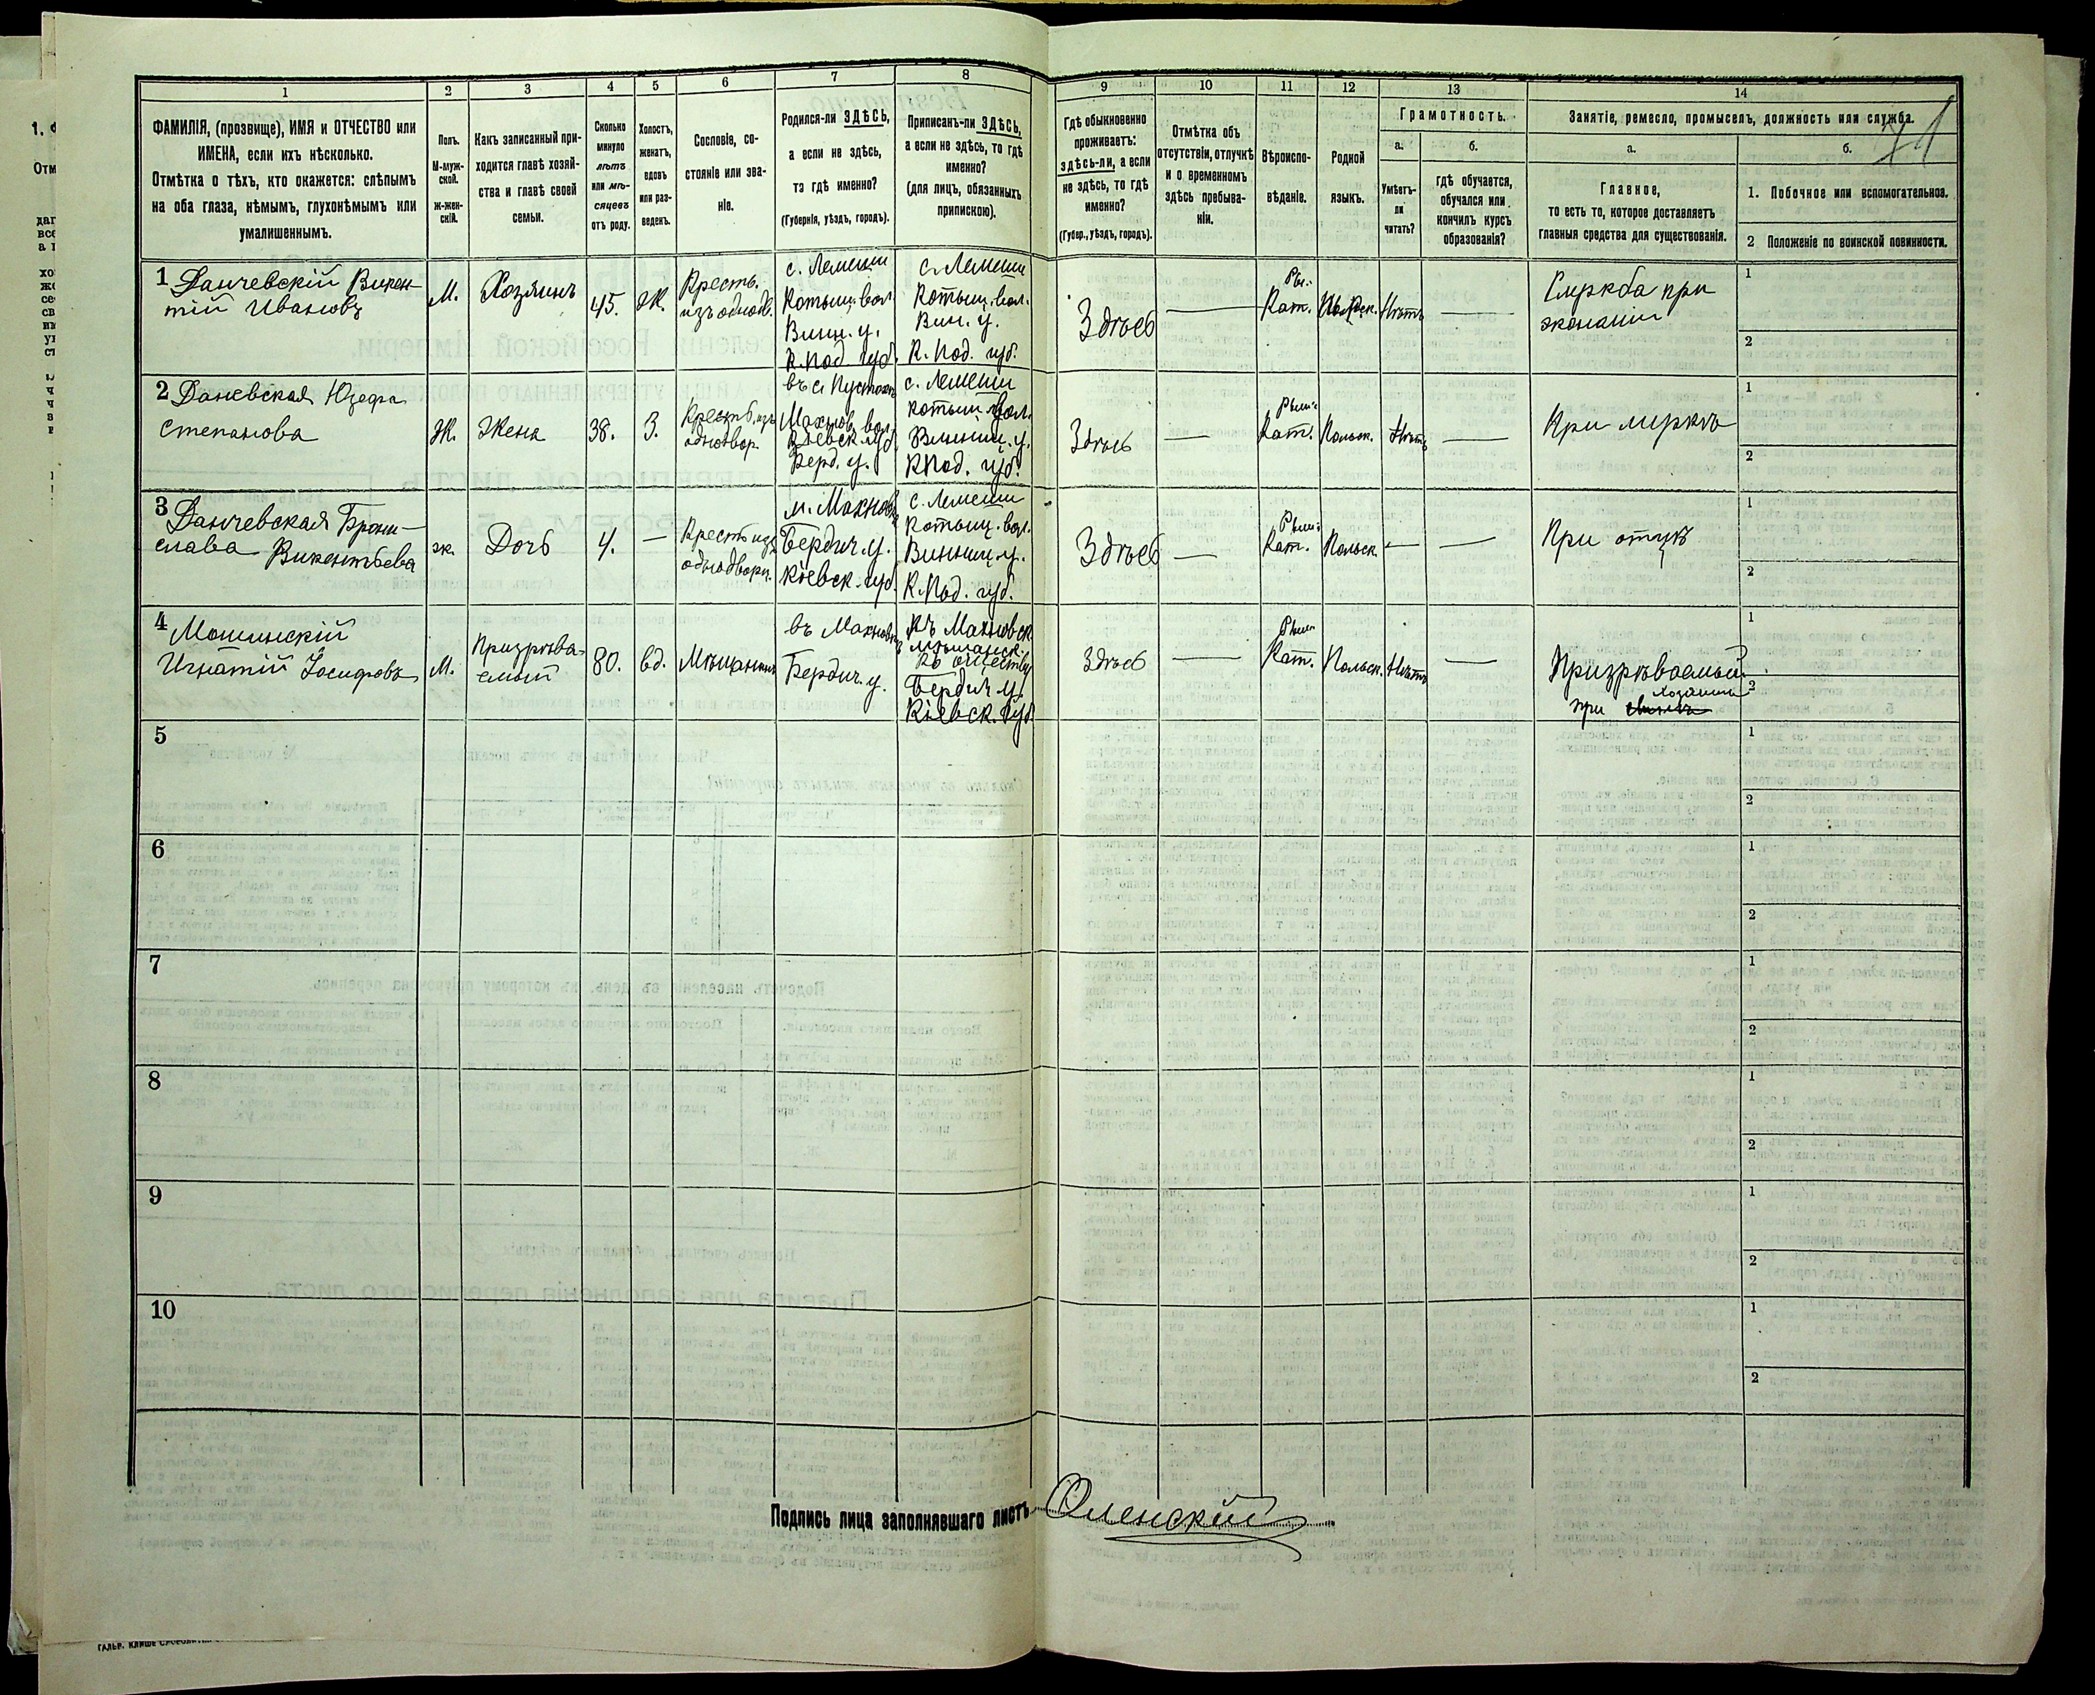 1 2 3 4 5 6 7 8 9 10 11 12 13 14
ФАМИЛІЯ, (прозвище), ИМЯ и ОТЧЕСТВО или
ИМЕНА, если ихъ нѣсколько.
Отмѣтка о тѣхъ, кто окажется: слѣпымъ
на оба глаза, нѣмымъ, глухонѣмымъ или
умалишеннымъ.
Полъ.
М-муж-
ской.
ж-жен-
скій.
Какъ записанный при-
ходится главѣ хозяй-
ства и главѣ своей
семьи.
Сколько
минуло
лѣтъ
или мѣ-
сяцевъ
отъ роду.
Холостъ,
женатъ,
вдовъ
или раз-
веденъ.
Сословіе, со-
стояніе или зва-
ніе.
Родился-ли ЗДѢСЬ,
а если не здѣсь,
то гдѣ именно?
(Губернія, уѣздъ, городъ).
Приписанъ-ли ЗДѢСЬ,
а если не здѣсь, то гдѣ
именно?
(для лицъ, обязанныхъ
припискою).
Гдѣ обыкновенно
проживаетъ:
здѣсь-ли, а если
не здѣсь, то гдѣ
именно?
(Губер., уѣздъ, городъ).
Отмѣтка объ
отсутствіи, отлучкѣ
и о временномъ
здѣсь пребыва-
ніи.
Вѣроиспо-
вѣданіе.
Родной
языкъ.
Грамотность.
а.
Умѣетъ-
ли
читать?
б.
гдѣ обучается,
обучался или
кончилъ курсъ
образованія?
Занятіе, ремесло, промыселъ, должность или служба.
а.
Главное,
то есть то, которое доставляетъ
главныя средства для существованія.
б.
1. Побочное или вспомогательное.
2 Положеніе по воинской повинности.
1 Данчевскій Викен-
тій Ивановъ
М.
Хозяинъ
45.
Ж.
Кресть.
изъ однодв.
с. Лемеши
Котыщ. вол.
Винн. у.
К. Под губ.
с. Лемеши
Котыщ. вол.
Вин. у.
К. Под. губ.
Здѣсь
—
Рм.
Кат.
Нѣтъ
—
Служба при
экономіи
1
2
2 Даневская Юзефа
Степанова
Ж.
Жена
38.
З.
Крестья. изъ
однодвор.
въ с.
Махнов. вол.
Кіевск. губ.
Берд. у.
с. Лемеши
Котыщ. вол.
Винниц. у.
К Под. губ.
Здѣсь
—
Рим.
Кат.
Польск.
Нѣтъ
—
При мужѣ
1
2
3 Данчевская Брони-
слава Викентьева
ж.
Дочь
4.
—
Кресть изъ
однодворц.
м. Махновка
Бердич. у.
Кіевск. губ.
с. Лемеши
Котыщ. вол.
Винниц. у.
К. Под. губ.
Здѣсь
—
Рим.
Кат.
Польск.
—
—
При отцѣ
1
2
4 Мошинскій
Игнатій Іосифовъ
М.
Призрѣва-
емый
80.
вд.
Мѣщанинъ
въ Махновкѣ
Бердич. у.
Къ Махновск.
мѣщанск.
обществу
Бердич у.
Кіевск. губ.
Здѣсь
—
Рим.
Кат.
Польск.
Нѣтъ
—
Призрѣваемый
при хозяинѣ
1
2
5
1
2
6
1
2
7
1
2
8
1
2
9
1
2
10
1
2
Подпись лица заполнявшаго листъ